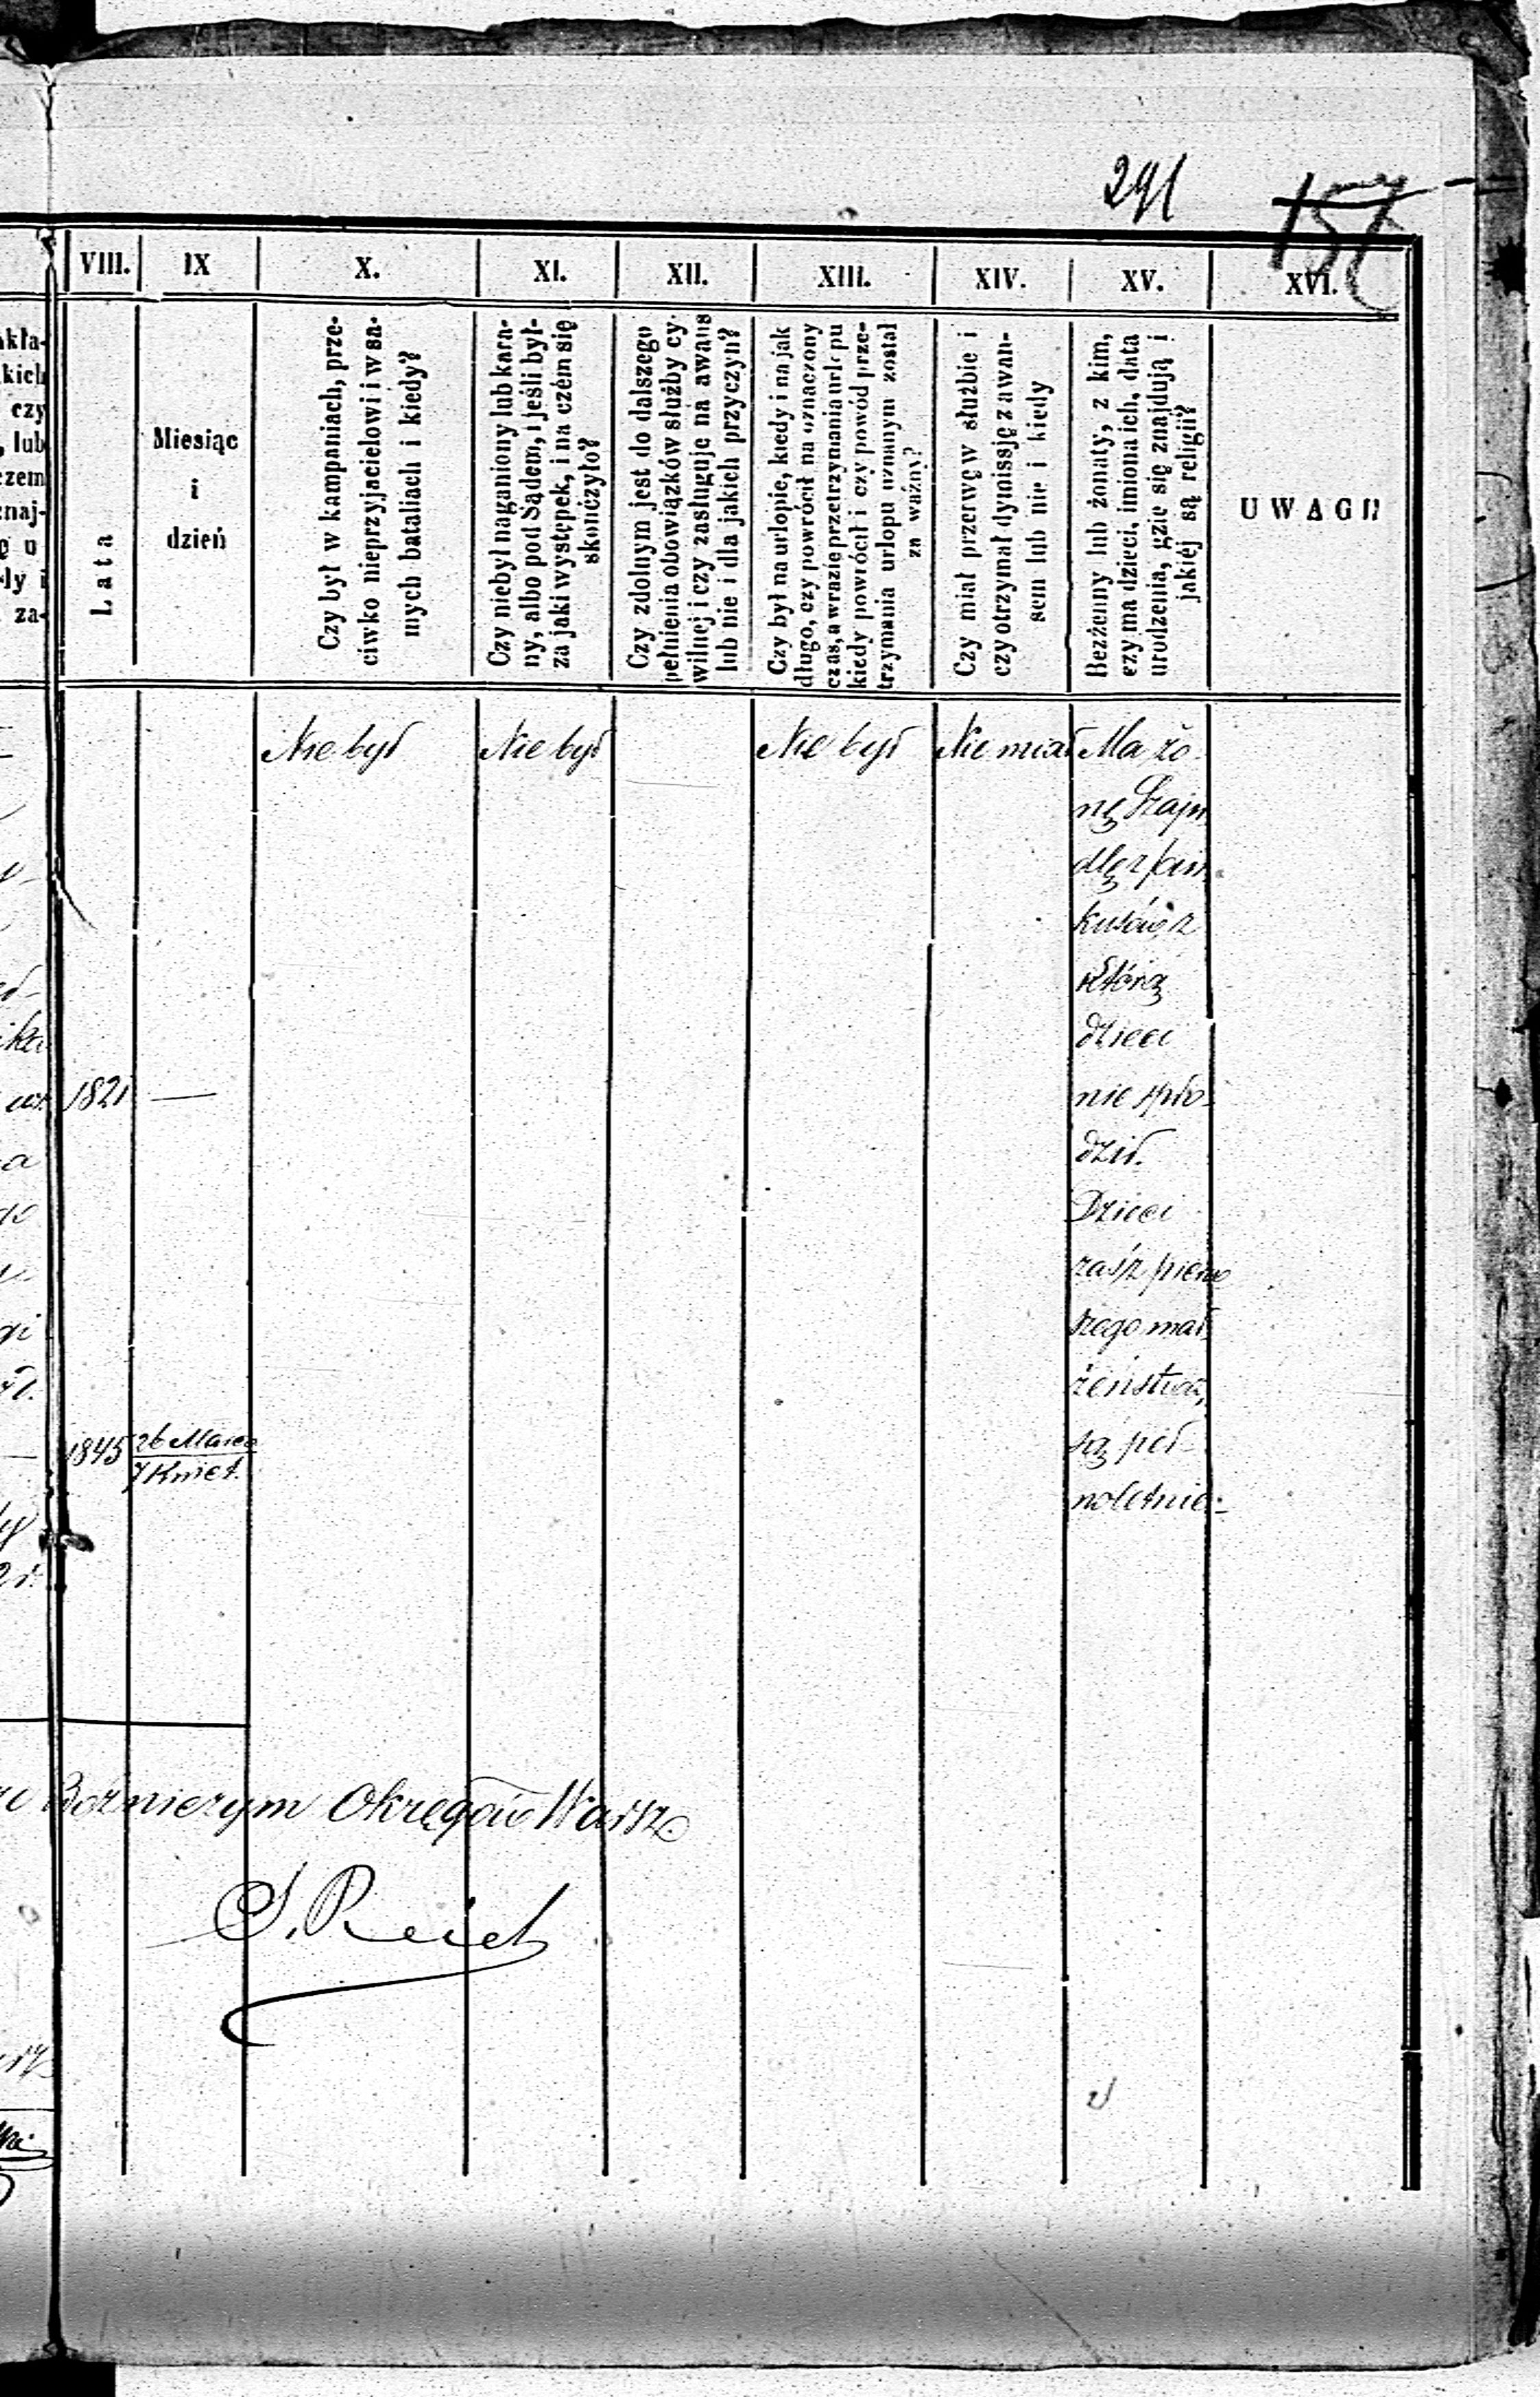 291
VIII. IX X. XI. XII. XIII. XIV. XV. XVI.
kła-
kich
czy
, lub
czem
znaj-
ę u
dy i
za-
Lata
Miesiąc
i
dzień
Czy był w kampaniach, prze-
ciwko nieprzyjacielowi i w sa-
mych bataliach i kiedy?
Czy niebył naganiony lub kara-
ny, albo pod Sądem, i jeśli był-
za jaki występek, i na czém się
skończyło?
Czy zdolnym jest do dalszego
pełnienia obowiązków służby cy-
wilnej i czy zasługuje na awans
lub nie i dla jakich przyczyn?
Czy był na urlopie, kiedy i na jak
długo, czy powrócił na oznaczony
czas, a w razie przetrzymania urlopu
kiedy powrócił i czy powód prze-
trzymania urlopu uznanym został
za ważny?
Czy miał przerwę w służbie i
czy otrzymał dymissję z awan-
sem lub nie i kiedy
Bezżenny lub żonaty, z kim,
czy ma dzieci, imiona ich, data
urodzenia, gzie się znajdują i
jakiéj są religii?
UWAGI
Nie był Nie był Nie był Nie miał Ma żo-
nę Szajn
dlę z
z
którą
dzieci
1821 — nie spło-
dził.
Dzieci
zaś z pierw
szego mał
żeństwa,
1845 26 Marca są peł-
7 Kwiet.
noletnie.-
Bożniczym Okręgów Warsz.
J. Reich